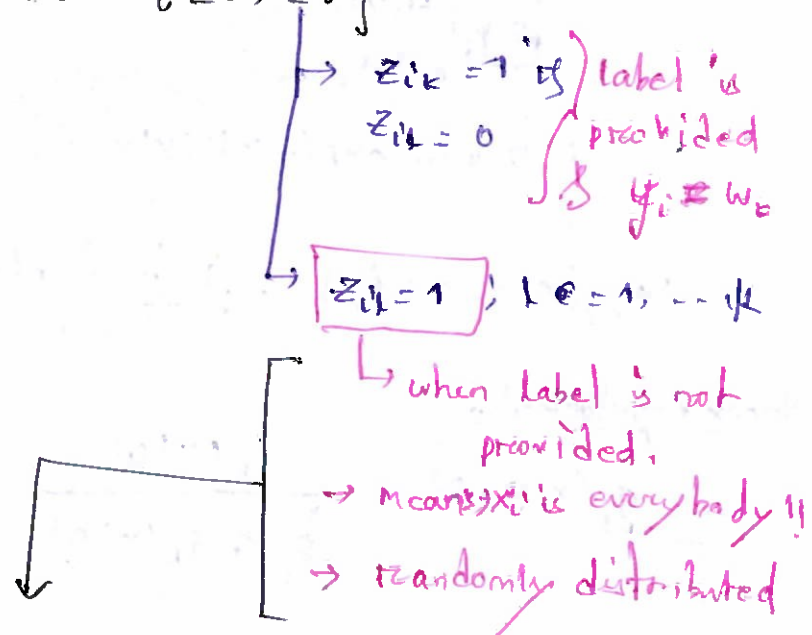 → Zik = 1 if } label is
Zil = 0 provided
& yi = wk
→ Zil = 1 ; l = 1, --- K
↳ when label is not
provided.
→ means, xi is everybody!!
→ randomly distributed